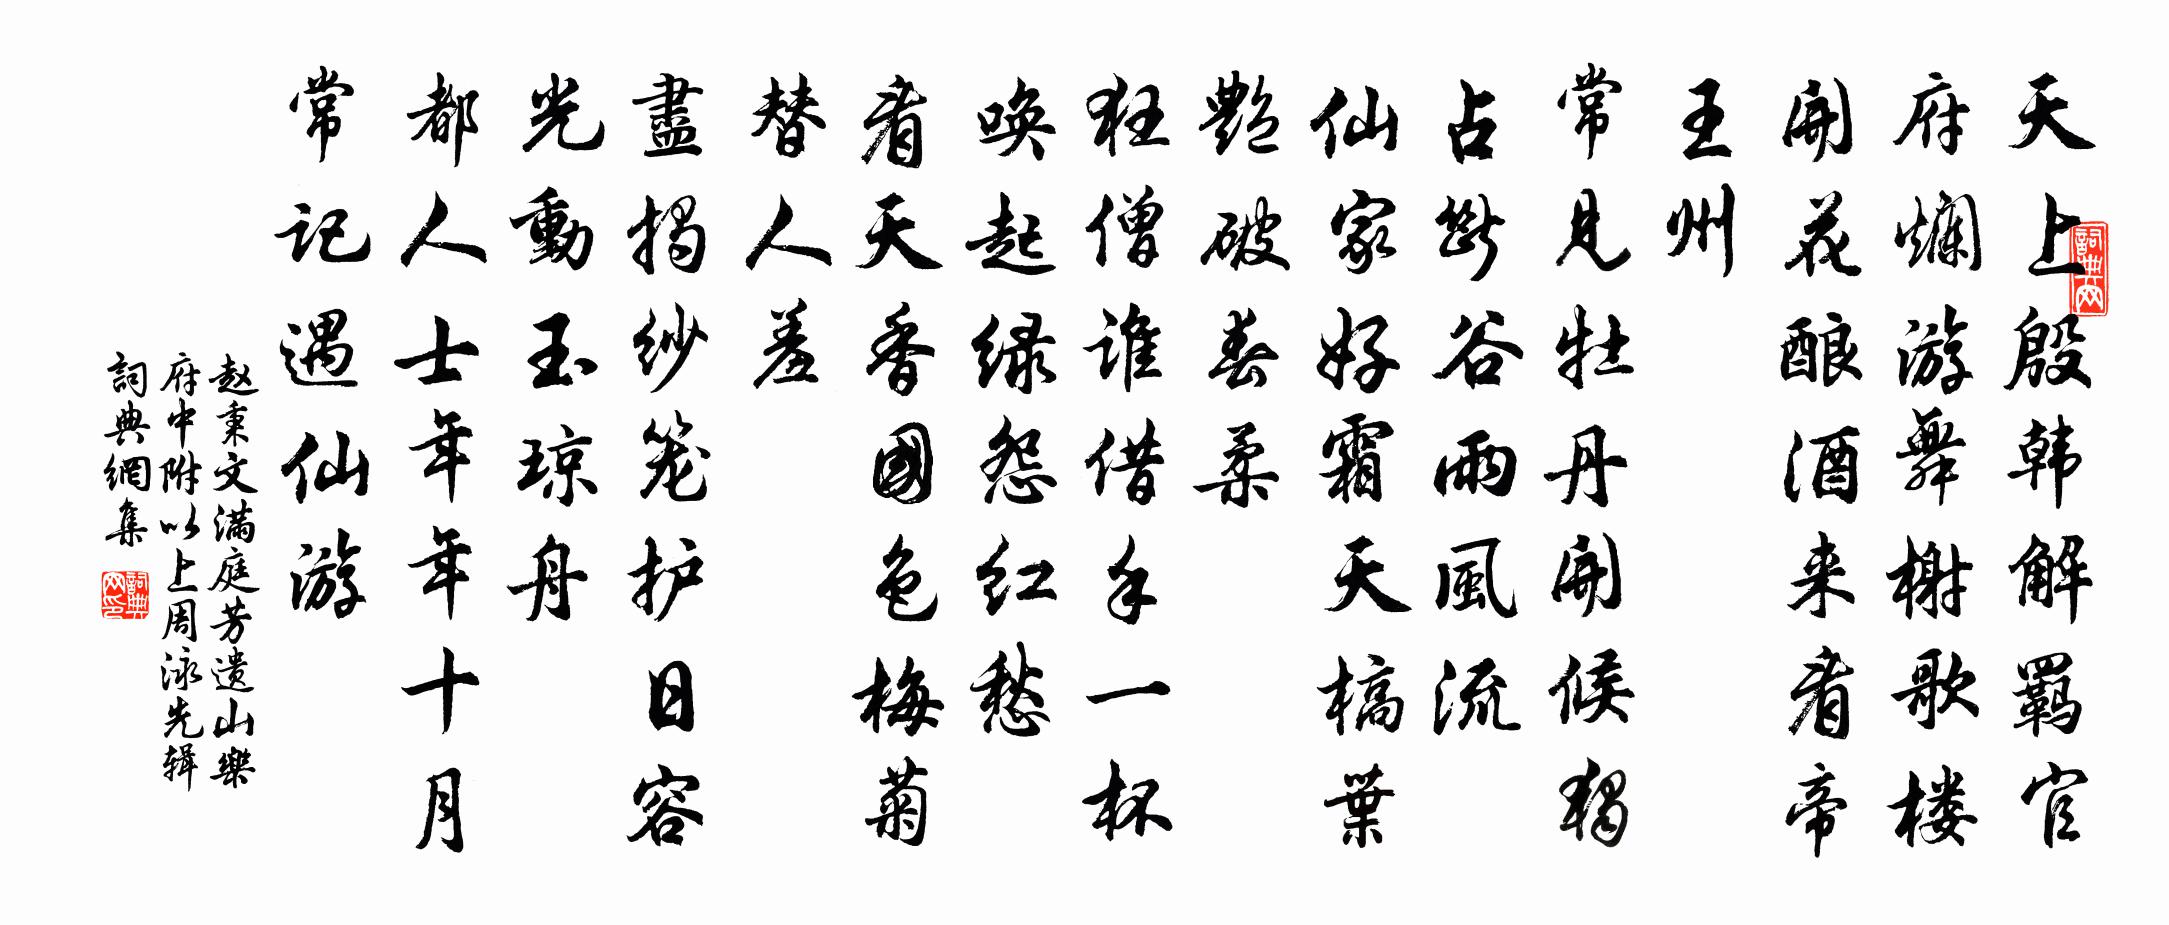 天上殷韩解羁官
府爛游舞榭歌楼
開花酿酒来看帝
王州
常見牡丹開候独
占断谷雨風流
仙家好霜天槁葉
艷破春柔
狂僧谁借手一杯
唤起绿怨红愁
看天香國色梅菊
替人羞
盡揭纱笼护日容
光動玉琼舟
都人士年年十月
常记遇仙游
赵秉文满庭芳遗山樂
府中附以上周泳先辑
詞典網集
詞典网
詞典网印